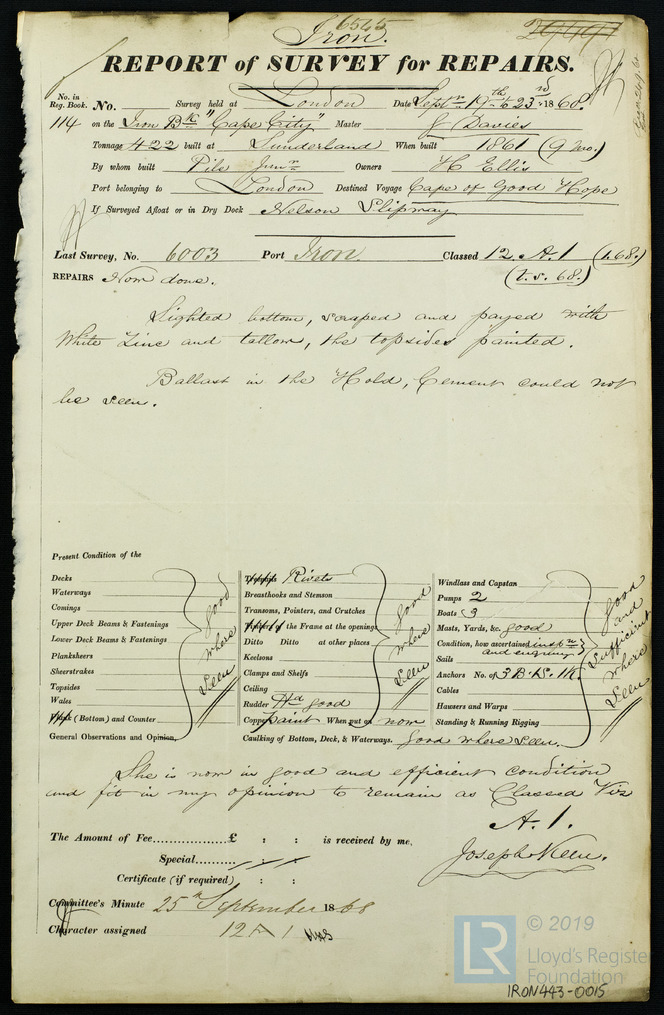 6565
Iron.
REPORT of SURVEY for REPAIRS.
No. in Reg. Book.
No. Survey held at London Date Septr. 19th to 23rd 1868.
114 on the Iron Bk "Cape City" Master J Davies
Tonnage 422 built at Sunderland When built 1861 (9 mo.)
By whom built Pile Junr Owners H Ellis
Port belonging to London Destined Voyage Cape of Good Hope
If Surveyed Afloat or in Dry Dock Nelson Slipway
Last Survey, No. 6003 Port Iron Classed 12 A.1 (1.68.)
(t.s. 68.)
REPAIRS Now done.
Sighted bottom, scraped and payed with
White Zinc and tallow, the topsides painted.
Ballast in the Hold, Cement could not
be seen.
Present Condition of the
Decks
Waterways
Comings
Upper Deck Beams & Fastenings
Lower Deck Beams & Fastenings
Planksheers
Sheerstrakes
Topsides
Wales
(Bottom) and Counter
General Observations and Opinion,
good where seen
Rivets
Breasthooks and Stemson
Transoms, Pointers, and Crutches
of the Frame at the openings
Ditto Ditto at other places
Keelsons
Clamps and Shelfs
Ceiling
Rudder Hd good
Copper paint When put on now
Caulking of Bottom, Deck, & Waterways. Good where seen.
good where seen
Windlass and Capstan
Pumps 2
Boats 3
Masts, Yards, &c. good
Condition, how ascertained inspn and enquiry
Sails
Anchors No. of 3 B. 1 S. 1 K.
Cables
Hausers and Warps
Standing & Running Rigging
good and sufficient where seen
She is now in good and efficient condition
and fit in my opinion to remain as Classed Viz
A.1.
The Amount of Fee £ : : is received by me,
Special
Joseph Keen.
Certificate (if required) : :
Committee's Minute 25th September 1868
Character assigned 12 A 1
© 2019
LR
Lloyd's Register
Foundation
IRON443-0015